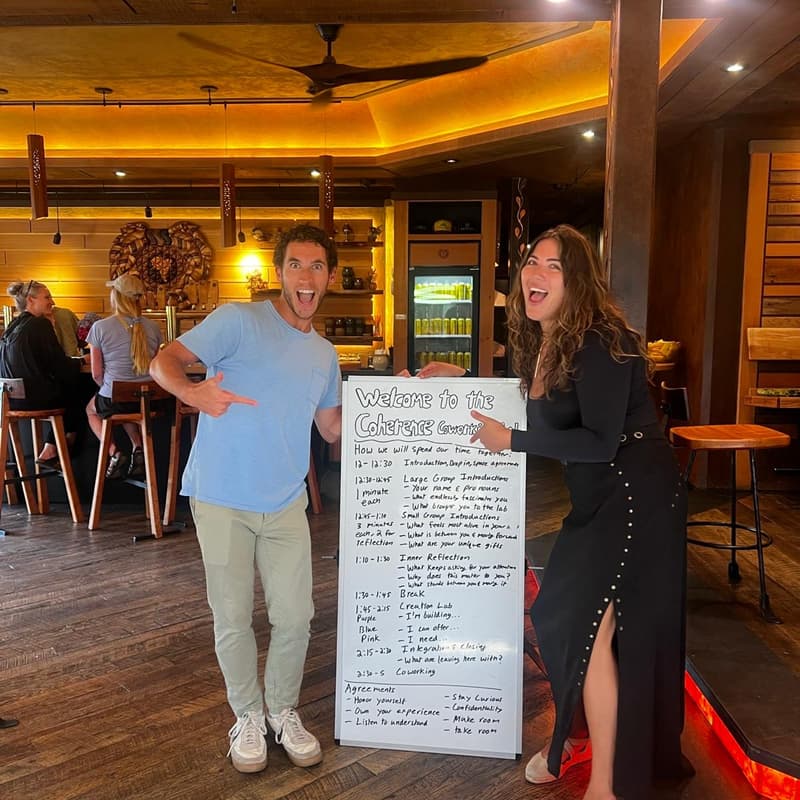 Welcome to the
Coherence
How we will spend our time together:
12 - 12:30 Introduction, Drop in, space agreements
12:30 - 12:45 Large Group Introductions
1 minute - Your name & pronouns
each - What endlessly fascinates you
- What brought you to the lab
12:45 - 1:10 Small Group Introductions
3 minutes - What feels most alive in your
each, 2 for - What is between you & moving forward
reflection - What are your unique gifts
1:10 - 1:30 Inner Reflection
- What keeps asking for your attention
- Why does this matter to you?
- What stands between you & moving it
1:30 - 1:45 Break
1:45 - 2:15 Creation Lab
Purple - I'm building...
Blue - I can offer...
Pink - I need...
2:15 - 2:30 Integration & closing
- What are leaving here with?
2:30 - 5 Coworking
Agreements
- Honor yourself
- Own your experience
- Listen to understand
- Stay Curious
- Confidentiality
- Make room
- take room